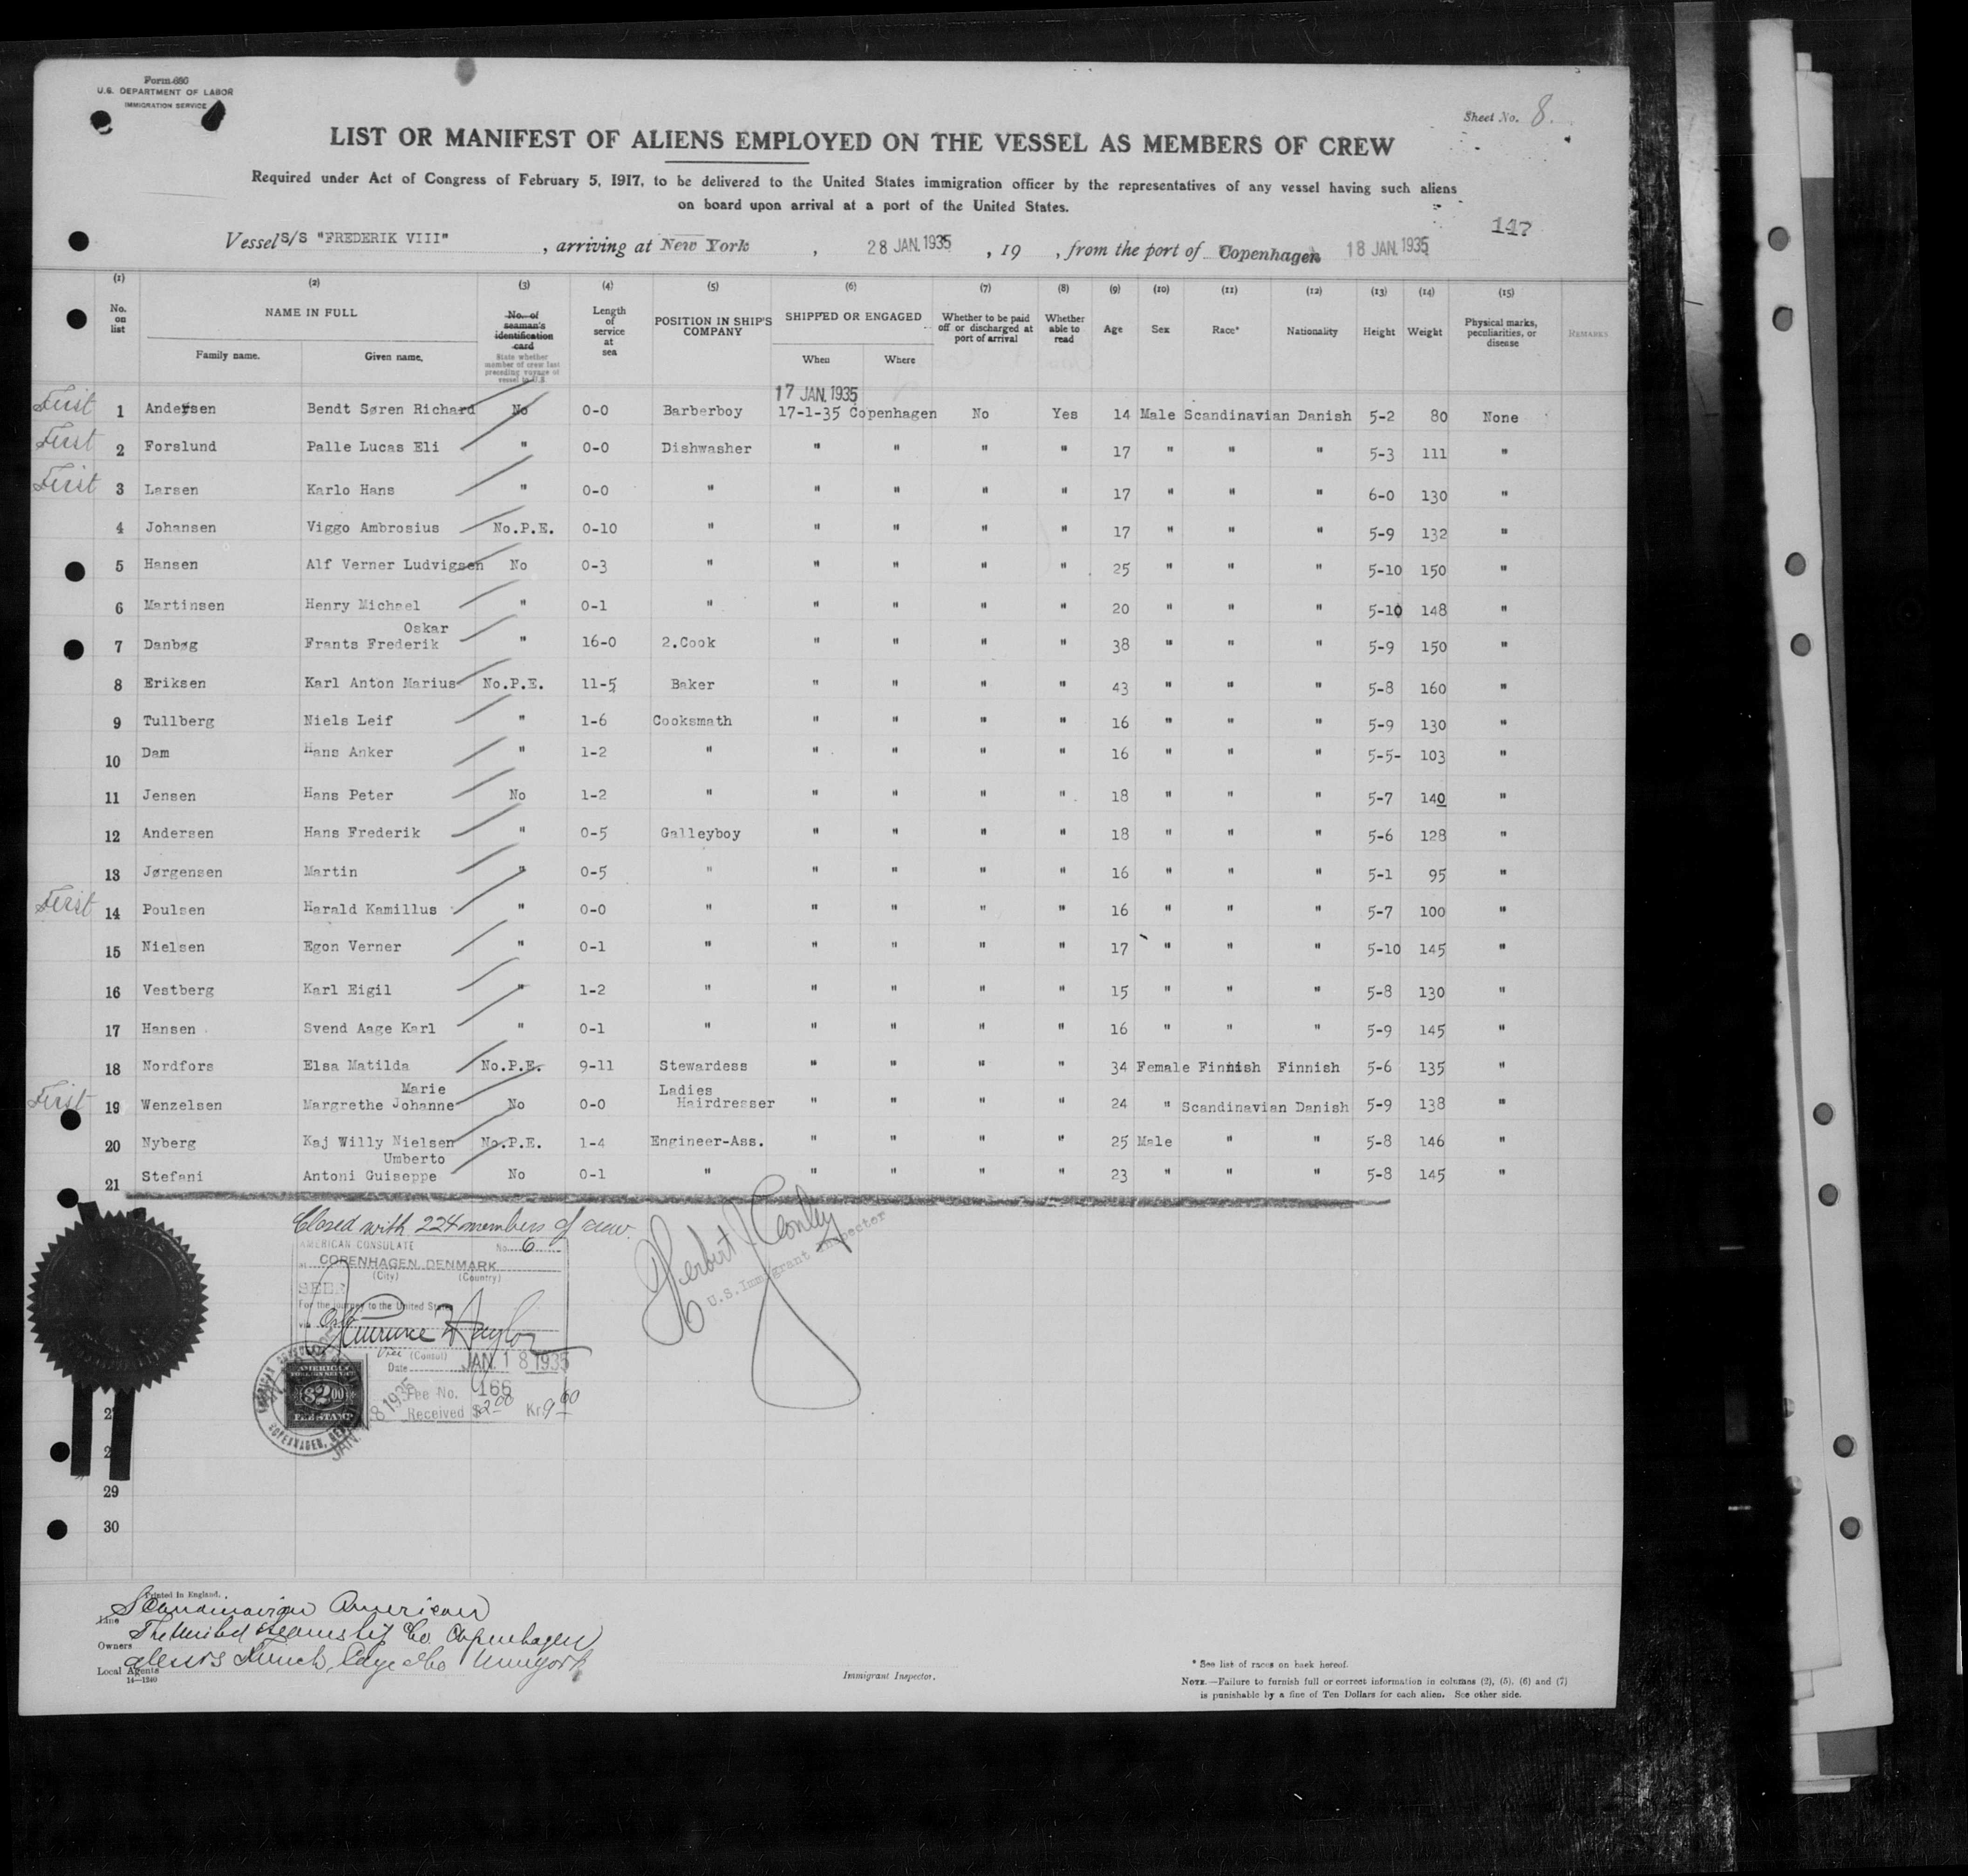 Form 680
U.S. DEPARTMENT OF LABOR
IMMIGRATION SERVICE
Sheet No. 8.
LIST OR MANIFEST OF ALIENS EMPLOYED ON THE VESSEL AS MEMBERS OF CREW
Required under Act of Congress of February 5, 1917, to be delivered to the United States immigration officer by the representatives of any vessel having such aliens
on board upon arrival at a port of the United States.
147
Vessel S/S "FREDERIK VIII" , arriving at New York , 28 JAN. 1935 , 19 , from the port of Copenhagen 18 JAN. 1935
(1) (2) (3) (4) (5) (6) (7) (8) (9) (10) (11) (12) (13) (14) (15)
No. on list NAME IN FULL Family name. Given name. No. of seaman's identification card State whether member of crew last preceding voyage of vessel to U.S. Length of service at sea POSITION IN SHIP'S COMPANY SHIPPED OR ENGAGED When Where Whether to be paid off or discharged at port of arrival Whether able to read Age Sex Race* Nationality Height Weight Physical marks, peculiarities, or disease REMARKS
17 JAN. 1935
First 1 Andersen Bendt Søren Richard No 0-0 Barberboy 17-1-35 Copenhagen No Yes 14 Male Scandinavian Danish 5-2 80 None
First 2 Forslund Palle Lucas Eli " 0-0 Dishwasher " " " " 17 " " " 5-3 111 "
First 3 Larsen Karlo Hans " 0-0 " " " " " 17 " " " 6-0 130 "
4 Johansen Viggo Ambrosius No.P.E. 0-10 " " " " " 17 " " " 5-9 132 "
5 Hansen Alf Verner Ludvigsen No 0-3 " " " " " 25 " " " 5-10 150 "
6 Martinsen Henry Michael " 0-1 " " " " " 20 " " " 5-10 148 "
Oskar
7 Danbøg Frants Frederik " 16-0 2.Cook " " " " 38 " " " 5-9 150 "
8 Eriksen Karl Anton Marius No.P.E. 11-5 Baker " " " " 43 " " " 5-8 160 "
9 Tullberg Niels Leif " 1-6 Cooksmath " " " " 16 " " " 5-9 130 "
10 Dam Hans Anker " 1-2 " " " " " 16 " " " 5-5- 103 "
11 Jensen Hans Peter No 1-2 " " " " " 18 " " " 5-7 140 "
12 Andersen Hans Frederik " 0-5 Galleyboy " " " " 18 " " " 5-6 128 "
13 Jørgensen Martin " 0-5 " " " " " 16 " " " 5-1 95 "
First 14 Poulsen Harald Kamillus " 0-0 " " " " " 16 " " " 5-7 100 "
15 Nielsen Egon Verner " 0-1 " " " " " 17 " " " 5-10 145 "
16 Vestberg Karl Eigil " 1-2 " " " " " 15 " " " 5-8 130 "
17 Hansen Svend Aage Karl " 0-1 " " " " " 16 " " " 5-9 145 "
18 Nordfors Elsa Matilda No.P.E. 9-11 Stewardess " " " " 34 Female Finnish Finnish 5-6 135 "
Marie Ladies
First 19 Wenzelsen Margrethe Johanne No 0-0 Hairdresser " " " " 24 " Scandinavian Danish 5-9 138 "
20 Nyberg Kaj Willy Nielsen No.P.E. 1-4 Engineer-Ass. " " " " 25 Male " " 5-8 146 "
Umberto
21 Stefani Antoni Guiseppe No 0-1 " " " " " 23 " " " 5-8 145 "
Closed with 224 members of crew.
AMERICAN CONSULATE No. 6
at COPENHAGEN, DENMARK
(City) (Country)
SEEN
For the journey to the United States
via Oslo
Vice (Consul)
Date JAN. 18 1935
Fee No. 166
Received $2.00 Kr. 9.60
AMERICAN
FOREIGN SERVICE
$2.00
FEE STAMP
JAN. 18 1935
Herbert J Conley
U.S. Immigrant Inspector
29
30
Printed in England.
Line Scandinavian American
Owners The United Steamship Co. Copenhagen
Local Agents Funch, Edye & Co New York
14-1240
Immigrant Inspector.
* See list of races on back hereof.
NOTE.—Failure to furnish full or correct information in columns (2), (5), (6) and (7)
is punishable by a fine of Ten Dollars for each alien. See other side.